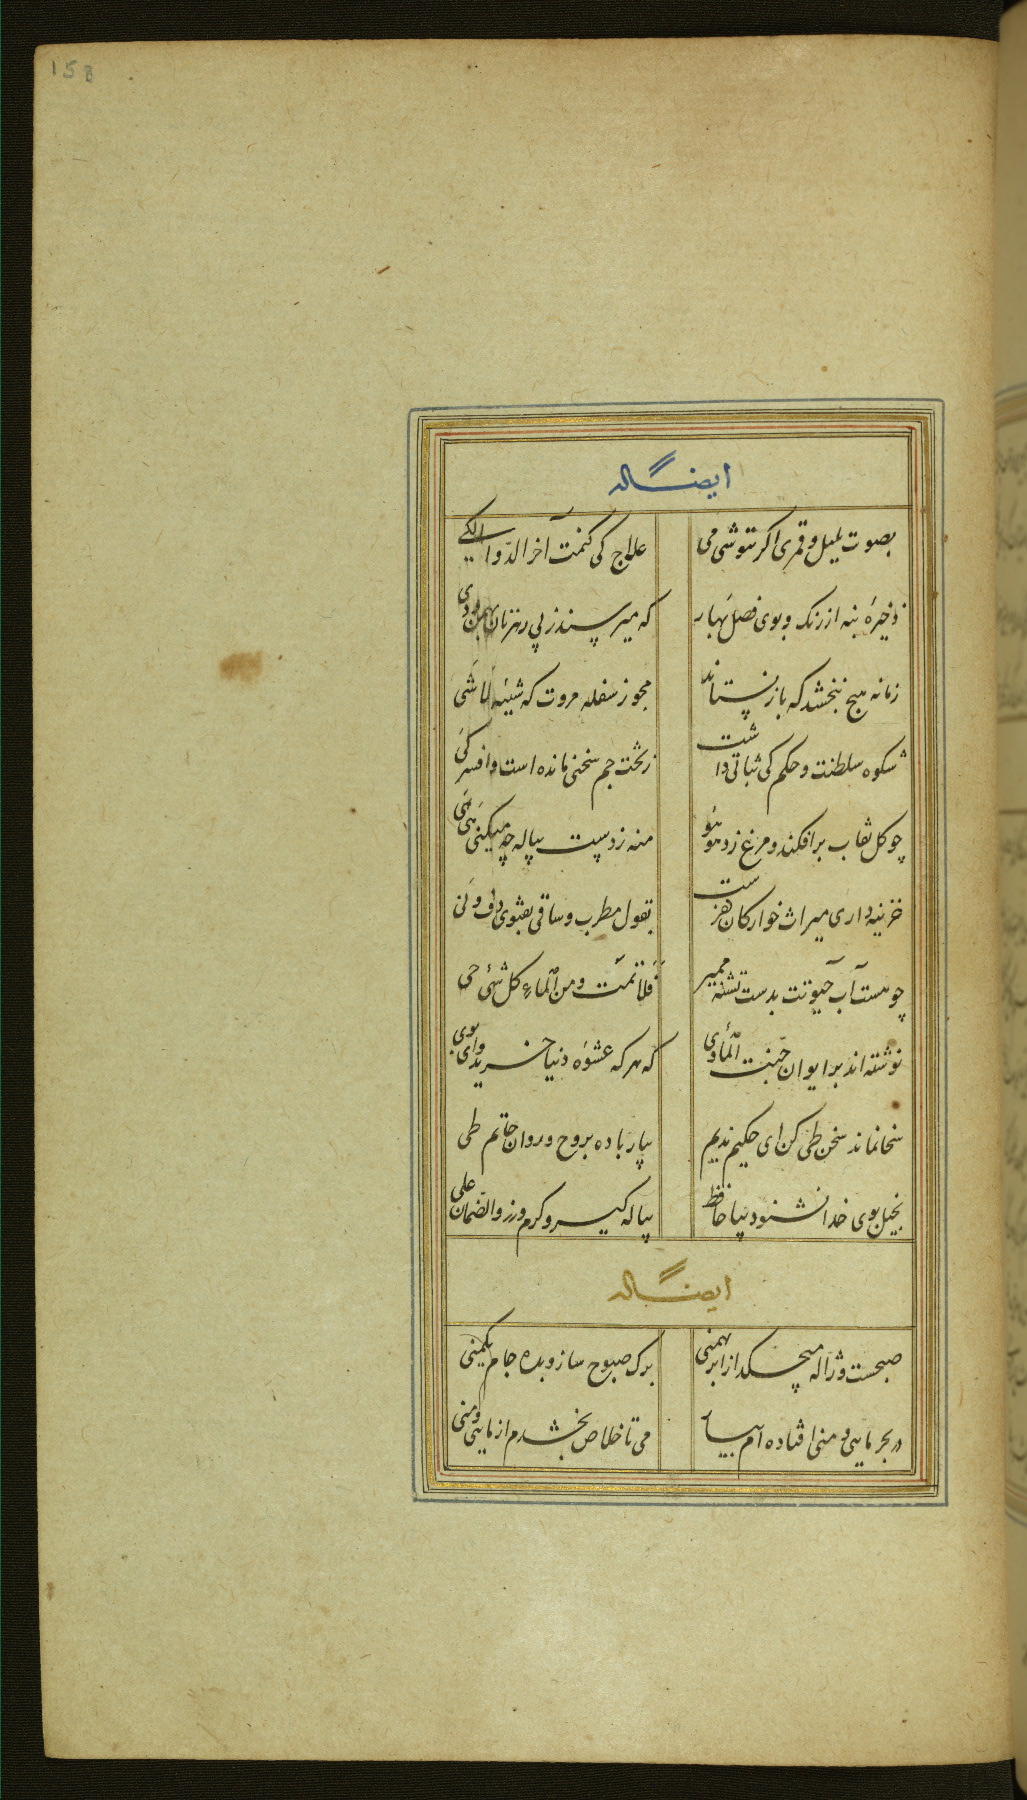 158
ایضاً له
بصوت بلبل و قمری اکر ننوشی می
علاج کی کنمت آخر الدّوا الکی
ذخیرهٔ بنه از رنک و بوی فصل بهار
که میرسند ز پی رهزنان بهمن و دی
زمانه هیچ نبخشد که باز نستاند
مجوز سفله مروت که شیئه لا شی
شکوه سلطنت و حکم کی ثباتی داشت
ز تخت جم سخنی مانده است و افسر کی
چو کل نقاب برافکند و مرغ زد هو هو
منه ز دست پیاله چه میکنی هی هی
خزینه داری میراث خوارکان کفرست
بقول مطرب و ساقی بفتوی دف و نی
چو هست آب حیوتت بدست تشنه ممیر
فلا تمت و من الماء کل شئی حی
نوشته اند بر ایوان جنت المأوی
که هر که عشوه دنیا خرید وای بوی
سخا نماند سخن طی کن ای حکیم ندیم
بیار باده بروح و روان حاتم طی
بخیل بوی خدا نشنود بیا حافظ
پیاله کیر و کرم ورز و الضمان علی
ایضاً له
صبحست و ژاله میچکد از ابر بهمنی
برک صبوح ساز و بده جام یکمنی
در بحر مایی و منی افتاده ام بیار
می تا خلاص بخشدم از مایی و منی